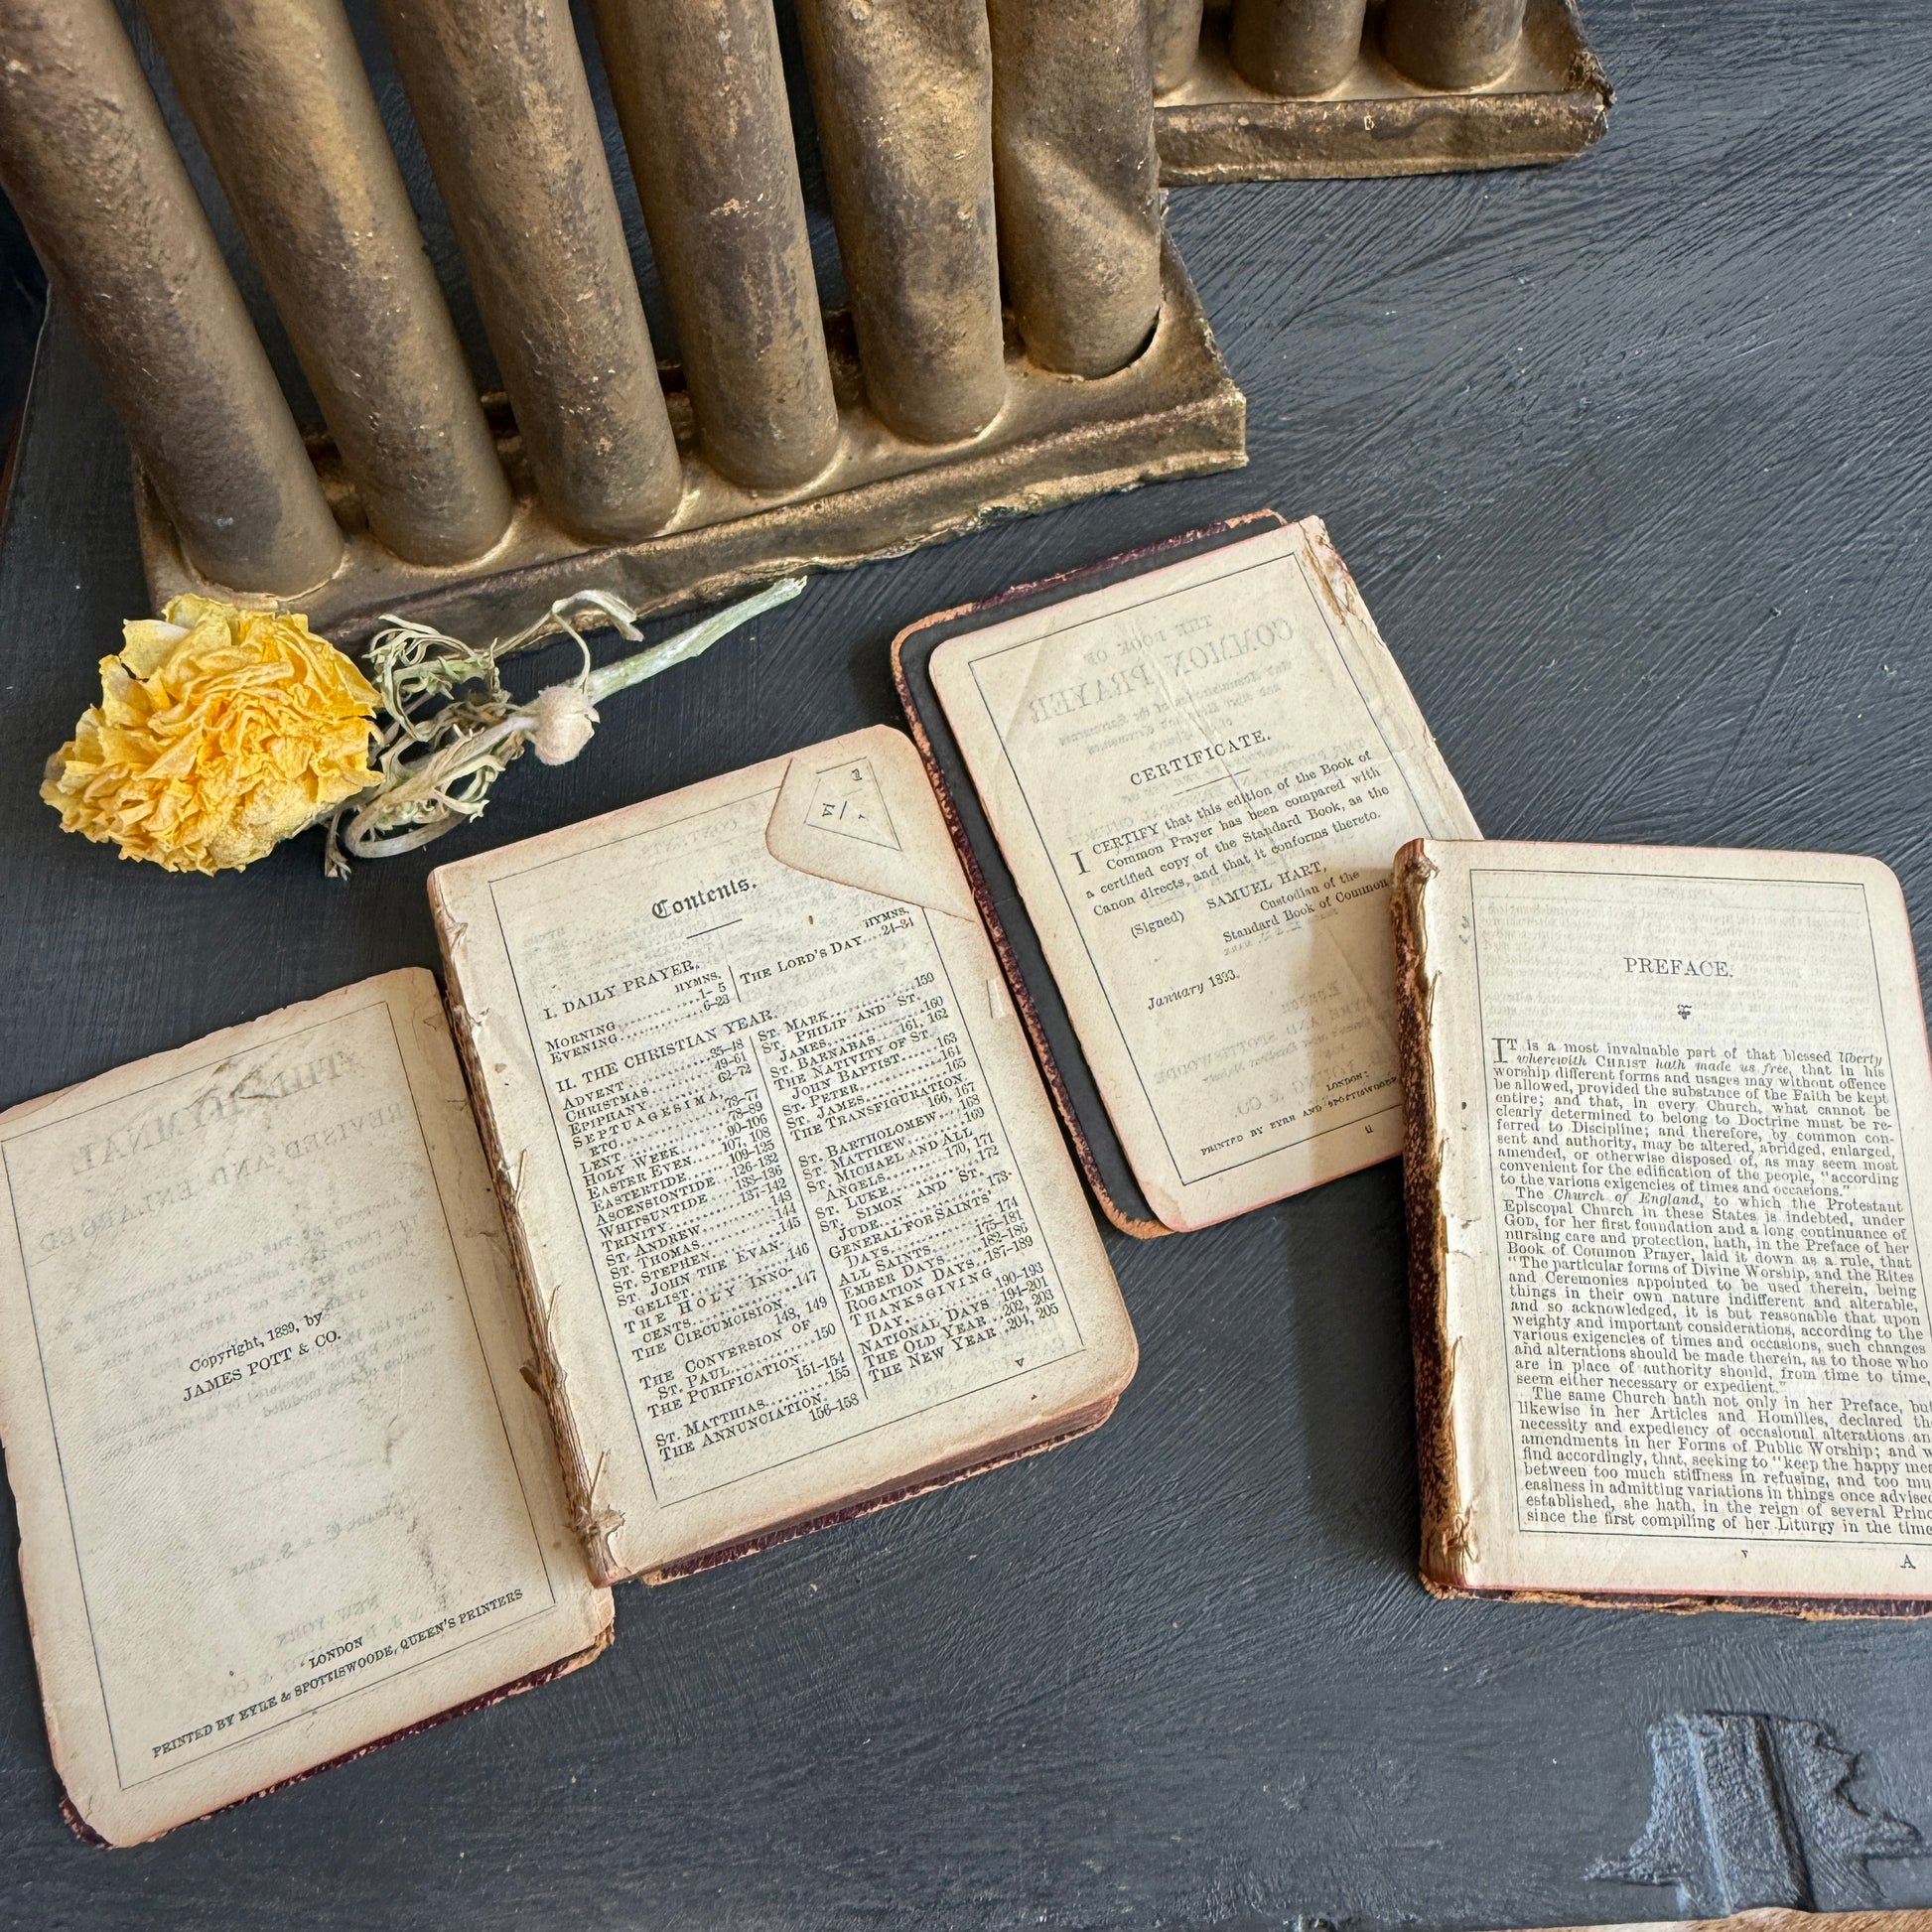 Copyright, 1889, by
JAMES POTT & CO.
LONDON
PRINTED BY EYRE & SPOTTISWOODE, QUEEN'S PRINTERS
Contents.
I. DAILY PRAYER.
HYMNS.
MORNING..........1- 5
EVENING..........6-23
HYMNS.
THE LORD'S DAY....24-34
II. THE CHRISTIAN YEAR.
ADVENT..........35-48
CHRISTMAS..........49-61
EPIPHANY..........62-72
SEPTUAGESIMA,
ETC..........73-77
LENT..........78-89
HOLY WEEK..........90-106
EASTER EVEN......107, 108
EASTERTIDE......109-125
ASCENSIONTIDE..126-132
WHITSUNTIDE....133-136
TRINITY..........137-142
ST. ANDREW..........143
ST. THOMAS..........144
ST. STEPHEN..........145
ST. JOHN THE EVAN-
GELIST..........146
THE HOLY INNO-
CENTS..........147
THE CIRCUMCISION,
148, 149
THE CONVERSION OF
ST. PAUL..........150
THE PURIFICATION.
151-154
ST. MATTHIAS..........155
THE ANNUNCIATION.
156-158
ST. MARK..........159
ST. PHILIP AND ST.
JAMES..........160
ST. BARNABAS...161, 162
THE NATIVITY OF ST.
JOHN BAPTIST......163
ST. PETER..........164
ST. JAMES..........165
THE TRANSFIGURATION.
166, 167
ST. BARTHOLOMEW...168
ST. MATTHEW..........169
ST. MICHAEL AND ALL
ANGELS......170, 171
ST. LUKE..........172
ST. SIMON AND ST.
JUDE..........173
GENERAL FOR SAINTS'
DAYS..........174
ALL SAINTS......175-181
EMBER DAYS......182-186
ROGATION DAYS...187-189
THANKSGIVING
DAY..........190-193
NATIONAL DAYS..194-201
THE OLD YEAR..202, 203
THE NEW YEAR..204, 205
V
CERTIFICATE.
I CERTIFY that this edition of the Book of
Common Prayer has been compared with
a certified copy of the Standard Book, as the
Canon directs, and that it conforms thereto.
(Signed) SAMUEL HART,
Custodian of the
Standard Book of Common
January 1893.
LONDON:
PRINTED BY EYRE AND SPOTTISWOODE,
ii
PREFACE.
IT is a most invaluable part of that blessed liberty
wherewith CHRIST hath made us free, that in his
worship different forms and usages may without offence
be allowed, provided the substance of the Faith be kept
entire; and that, in every Church, what cannot be
clearly determined to belong to Doctrine must be re-
ferred to Discipline; and therefore, by common con-
sent and authority, may be altered, abridged, enlarged,
amended, or otherwise disposed of, as may seem most
convenient for the edification of the people, "according
to the various exigencies of times and occasions."
The Church of England, to which the Protestant
Episcopal Church in these States is indebted, under
GOD, for her first foundation and a long continuance of
nursing care and protection, hath, in the Preface of her
Book of Common Prayer, laid it down as a rule, that
"The particular forms of Divine Worship, and the Rites
and Ceremonies appointed to be used therein, being
things in their own nature indifferent and alterable,
and so acknowledged, it is but reasonable that upon
weighty and important considerations, according to the
various exigencies of times and occasions, such changes
and alterations should be made therein, as to those who
are in place of authority should, from time to time,
seem either necessary or expedient."
The same Church hath not only in her Preface, but
likewise in her Articles and Homilies, declared the
necessity and expediency of occasional alterations an
amendments in her Forms of Public Worship; and w
find accordingly, that, seeking to "keep the happy mea
between too much stiffness in refusing, and too mu
easiness in admitting variations in things once advised
established, she hath, in the reign of several Princ
since the first compiling of her Liturgy in the time
v
A